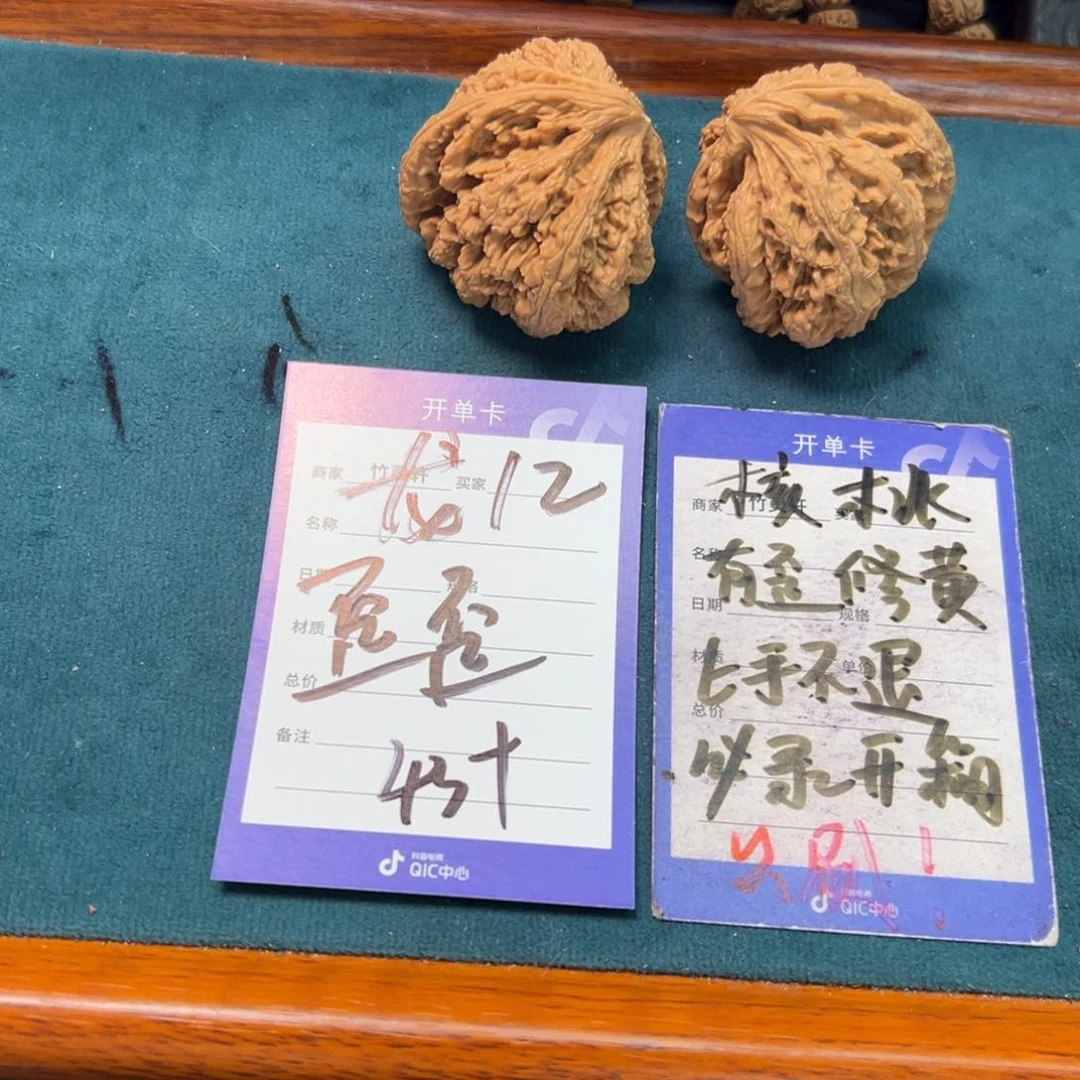 开单卡
商家 竹 轩 买家 12
名称
日期 规格
豆歪
材质
总价
备注
45+
抖音电商
QIC中心
开单卡
核桃
商家 竹 轩
名称
有歪修黄
日期 规格
材质 单价
上手不退
总价
必录开箱
必刷!
抖音电商
QIC中心